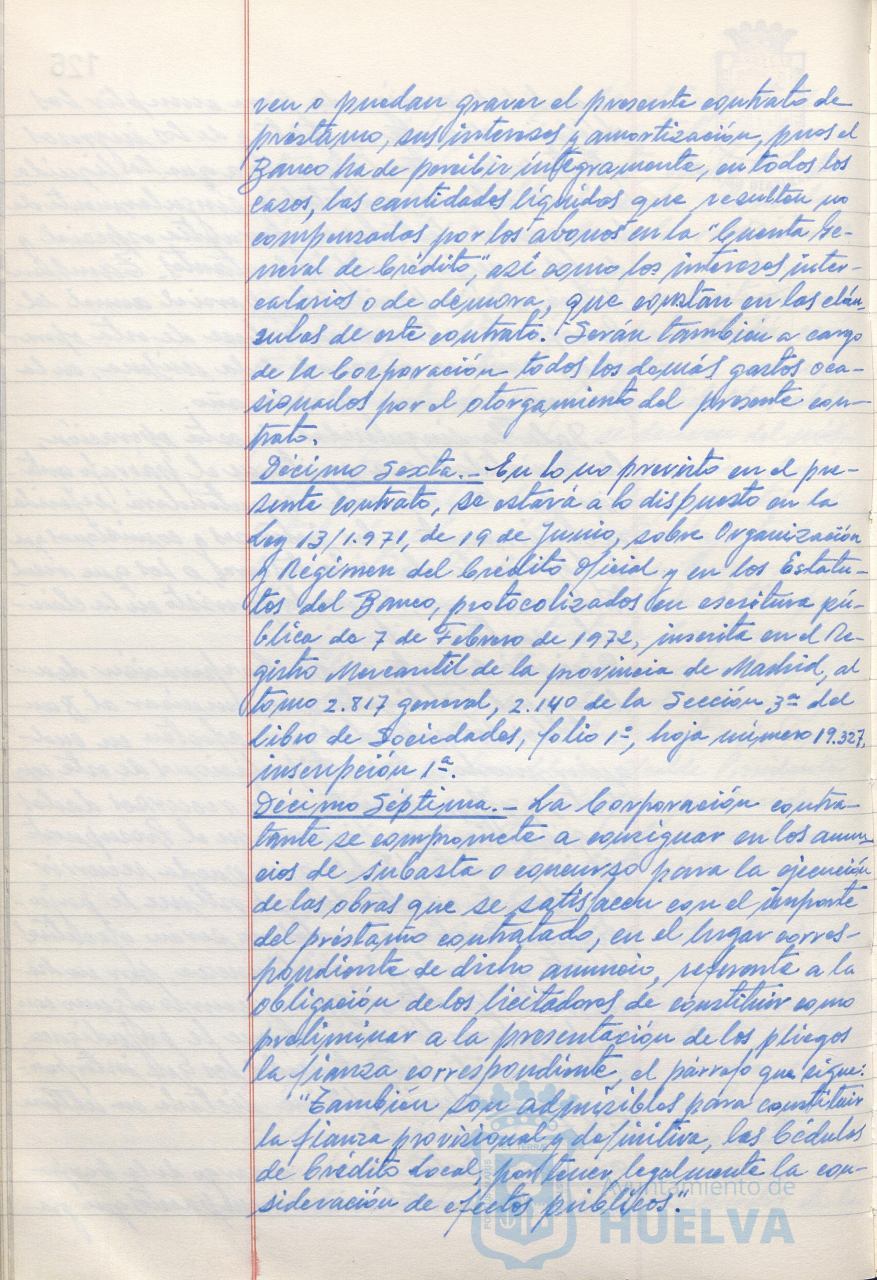 ven o puedan gravar el presente contrato de
préstamo, sus intereses y amortización, pues el
Banco ha de percibir íntegramente, en todos los
casos, las cantidades líquidas que resulten no
compensadas por los abonos en la "Cuenta Ge-
neral de Crédito," así como los intereses inter-
calarios o de demora, que constan en las cláu-
sulas de este contrato. Serán también a cargo
de la Corporación todos los demás gastos oca-
sionados por el otorgamiento del presente con-
trato.
Décimo Sexta.- En lo no previsto en el pre-
sente contrato, se estará a lo dispuesto en la
Ley 13/1.971, de 19 de Junio, sobre Organización
y Régimen del Crédito Oficial y en los Estatu-
tos del Banco, protocolizados en escritura pú-
blica de 7 de Febrero de 1972, inscrita en el Re-
gistro Mercantil de la provincia de Madrid, al
tomo 2.817 general, 2.140 de la Sección 3ª del
Libro de Sociedades, folio 1º, hoja número 19.327,
inscripción 1ª.
Décimo Séptima.- La Corporación contra-
tante se compromete a consignar en los anun-
cios de subasta o concurso para la ejecución
de las obras que se satisfacen con el importe
del préstamo contratado, en el lugar corres-
pondiente de dicho anuncio, referente a la
obligación de los licitadores de constituir como
preliminar a la presentación de los pliegos
la fianza correspondiente, el párrafo que sigue:
"También son admisibles para constituir
la fianza provisional y definitiva, las Cédulas
de Crédito Local, por tener legalmente la con-
sideración de efectos públicos."
Ayuntamiento de
HUELVA